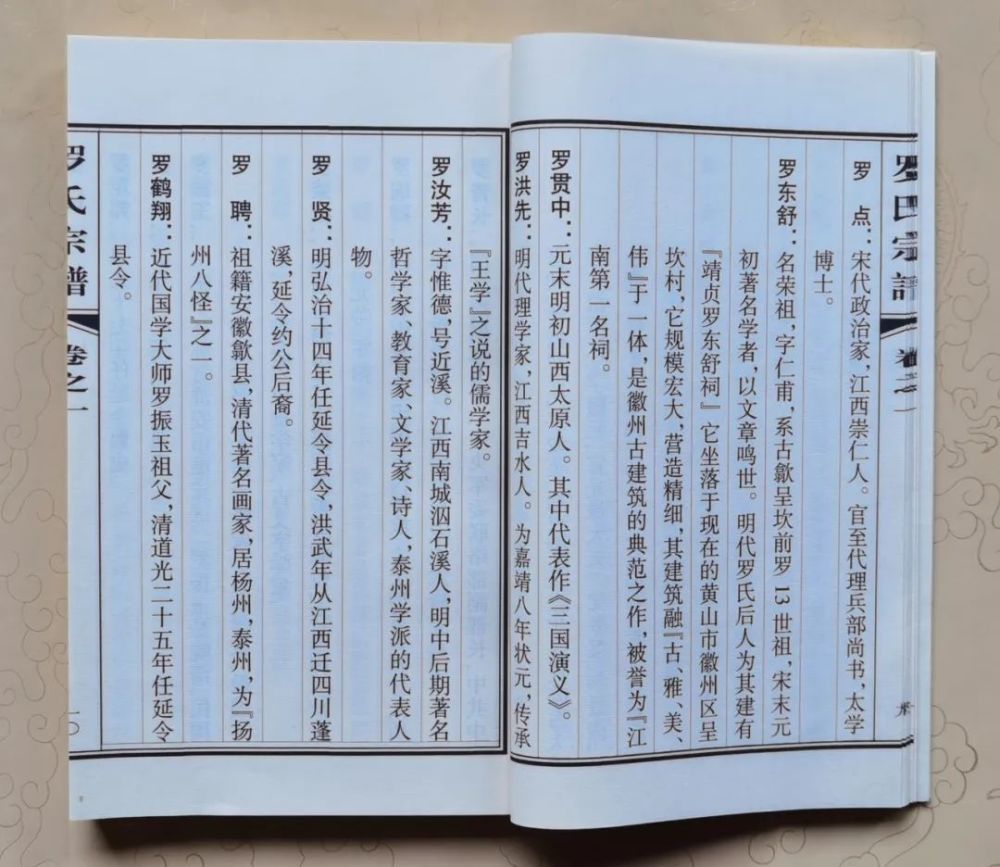 罗氏宗谱
卷之一
罗　点：宋代政治家，江西崇仁人。官至代理兵部尚书，太学
博士。
罗东舒：名荣祖，字仁甫，系古歙呈坎前罗 13 世祖，宋末元
初著名学者，以文章鸣世。明代罗氏后人为其建有
『靖贞罗东舒祠』它坐落于现在的黄山市徽州区呈
坎村，它规模宏大，营造精细，其建筑融『古、雅、美、
伟』于一体，是徽州古建筑的典范之作，被誉为『江
南第一名祠。
罗贯中：元末明初山西太原人。其中代表作《三国演义》。
罗洪先：明代理学家，江西吉水人。为嘉靖八年状元，传承
『王学』之说的儒学家。
罗汝芳：字惟德，号近溪。江西南城泗石溪人，明中后期著名
哲学家、教育家、文学家、诗人，泰州学派的代表人
物。
罗　贤：明弘治十四年任延令县令，洪武年从江西迁四川蓬
溪，延令约公后裔。
罗　聘：祖籍安徽歙县，清代著名画家，居杨州，泰州，为『扬
州八怪』之一。
罗鹤翔：近代国学大师罗振玉祖父，清道光二十五年任延令
县令。
罗氏宗谱
卷之一
一〇